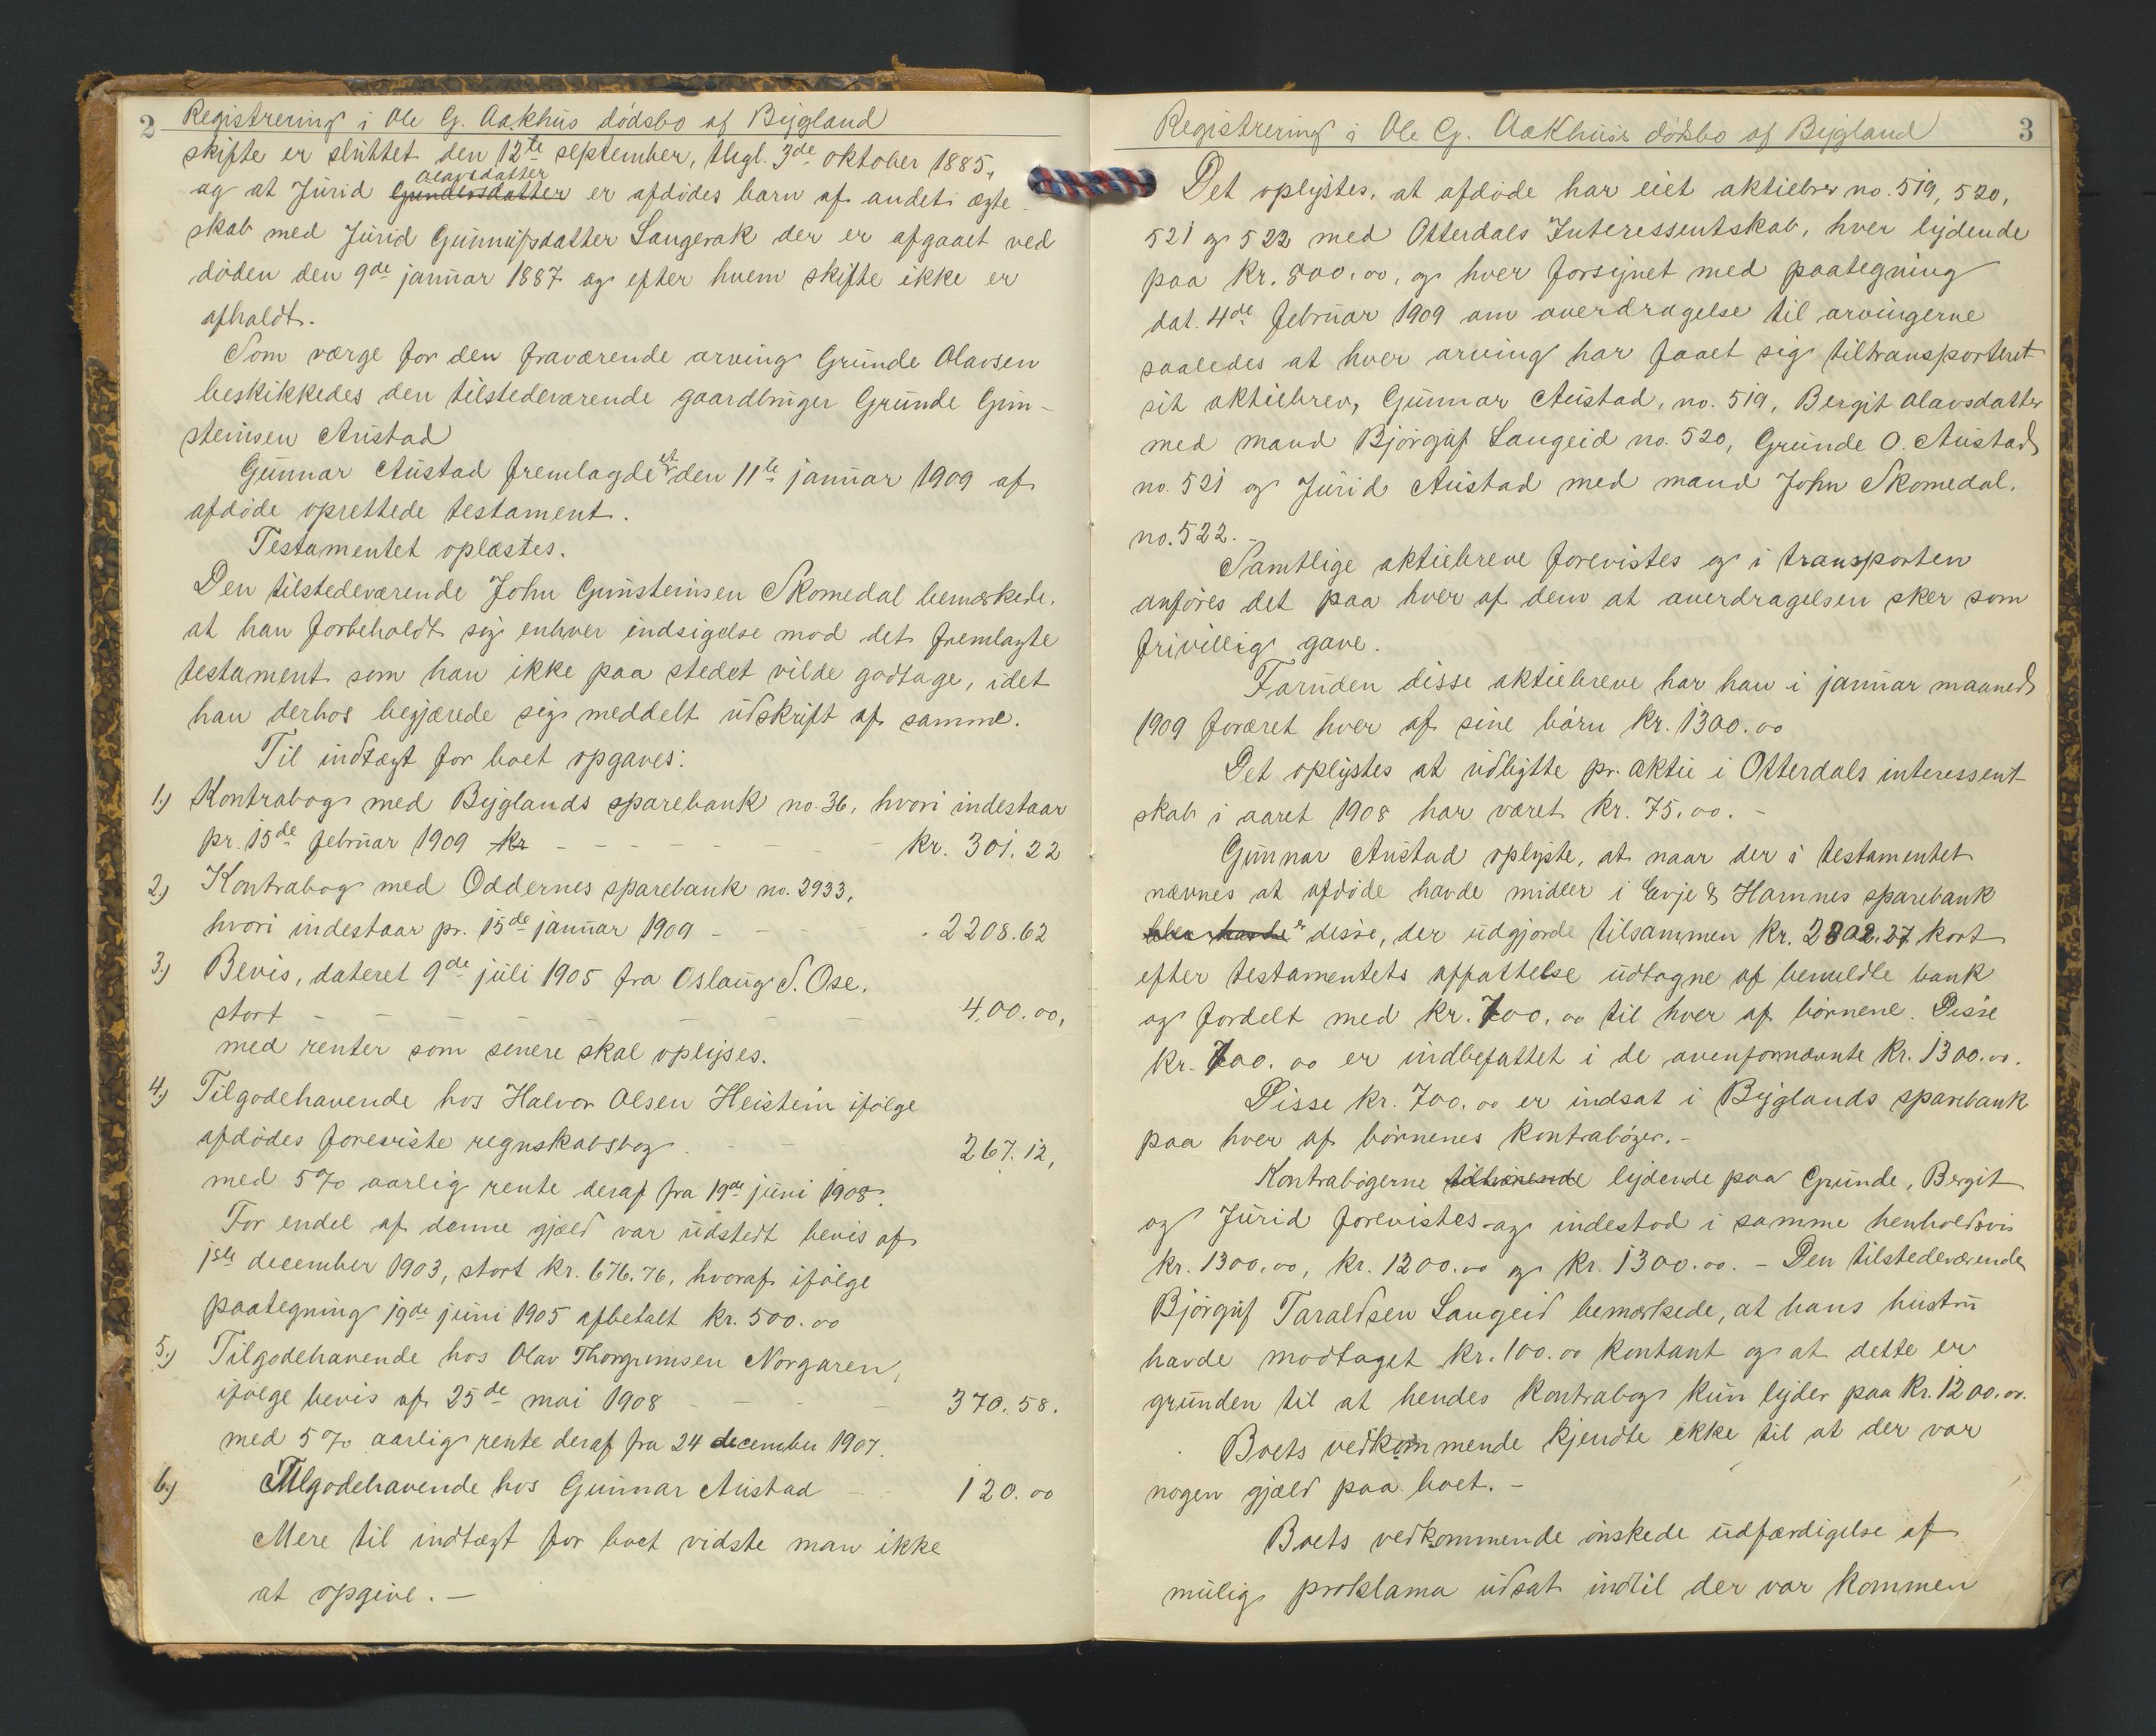 2 Registrering i Ole G. Aakhus dödsbo af Bygland
skifte er sluttet den 12te september, thgl. 3de oktober 1885,
og at Jurid Gundersdatter olavsdatter er afdödes barn af andet ægte
skab med Jurid Gunnufsdatter Langerak der er afgaaet ved
döden den 9de januar 1887 og efter hvem skifte ikke er
afholdt.
Som værge for den fraværende arving Grunde Olavsen
beskikkedes den tilstedeværende gaardbruger Grunde Gun-
steinsen Austad
Gunnar Austad fremlagde et den 11te januar 1909 af
afdöde oprettede testament.
Testamentet oplæstes.
Den tilstedeværende John Gunsteinsen Skomedal bemærkede,
at han forbeholdt sig enhver indsigelse mod det fremlagte
testament som han ikke paa stedet vilde godtage, idet
han derhos begjærede sig meddelt udskrift af samme.
Til indtægt for boet opgaves:
1.) Kontrabog med Byglands sparebank no. 36, hvori indestaar
pr. 15de februar 1909 kr - - - - kr. 301.22
2.) Kontrabog med Oddernes sparebank no. 2933,
hvori indestaar pr. 15de januar 1909 - - - 2208.62
3.) Bevis, dateret 9de juli 1905 fra Oslaug S. Ose,
stort - - - - - - 400.00,
med renter som senere skal oplyses.
4.) Tilgodehavende hos Halvor Olsen Heistein ifölge
afdödes foreviste regnskabsbog - - 267.12,
med 5% aarlig rente deraf fra 19de juni 1908.
For endel af denne gjæld var udstedt bevis af
1ste december 1903, stort kr. 676.76, hvoraf ifölge
paategning 19de juni 1905 afbetalt kr. 500.00
5.) Tilgodehavende hos Olav Thorgrimsen Norgaren,
ifölge bevis af 25de mai 1908 - - - 370.58.
med 5% aarlig rente deraf fra 24 december 1907.
6.) Tilgodehavende hos Gunnar Austad - - 120.00
Mere til indtægt for boet vidste man ikke
at opgive. -
Registrering i Ole G. Aakhus dödsbo af Bygland 3
Det oplystes, at afdöde har eiet aktiebrev no. 519, 520,
521 og 522 med Otterdals Interessentskab, hver lydende
paa kr. 800.00, og hver forsynet med paategning
dat. 4de februar 1909 om overdragelse til arvingerne
saaledes at hver arving har faaet sig tiltransporteret
sit aktiebrev, Gunnar Austad, no. 519, Bergit Olavsdatter
med mand Björguf Langeid no. 520, Grunde O. Austad
no. 521 og Jurid Austad med mand John Skomedal,
no. 522. -
Samtlige aktiebreve forevistes og i transporten
anföres det paa hver af dem at overdragelsen sker som
frivillig gave.
Foruden disse aktiebreve har han i januar maaned
1909 foræret hver af sine börn kr. 1300.00
Det oplystes at udbytte pr. aktie i Otterdals interessent
skab i aaret 1908 har været kr. 75.00. -
Gunnar Austad oplyste, at naar der i testamentet
nævnes at afdöde havde midler i Evje & Hornnes sparebank
er disse, der udgjorde tilsammen kr. 2802.27 kort
efter testamentets affattelse udtagne af bemeldte bank
og fordelt med kr. 700.00 til hver af börnene. Disse
kr. 700.00 er indbefattet i de ovenfornævnte kr. 1300.00.
Disse kr. 700.00 er indsat i Byglands sparebank
paa hver af börnenes kontraböger. -
Kontrabögerne tilhörende lydende paa Grunde, Bergit
og Jurid forevistes og indestod i samme henholdsvis
kr. 1300.00, kr. 1200.00 og kr. 1300.00. - Den tilstedeværende
Björguf Taraldsen Langeid bemærkede, at hans hustru
havde modtaget kr. 100.00 kontant og at dette er
grunden til at hendes kontrabog kun lyder paa kr. 1200.00.
Boets vedkommende kjendte ikke til at der var
nogen gjæld paa boet. -
Boets vedkommende önskede udfærdigelse af
mulig proklama udsat indtil der var kommen